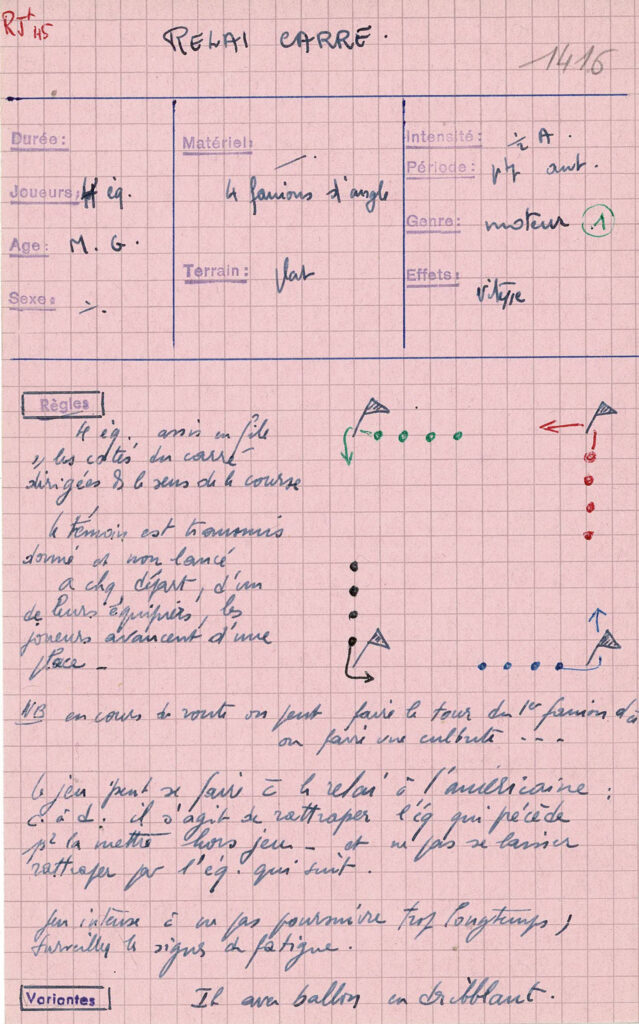 RJ+ 45
RELAI CARRE.
1416
Durée:
Joueurs: 4 éq.
Age: M. G.
Sexe:
Matériel:
4 fanions d'angle
Terrain: plat
Intensité: ½ A.
Période: aut.
Genre: moteur 1
Effets: vitesse
Règles
4 éq., assis en file
s/ les cotés du carré
dirigées ds le sens de la course
le témoin est transmis
donné et non lancé
a chq. départ, d'un
de leurs équipiers, les
joueurs avancent d'une
place -
NB en cours de route on peut faire le tour du 1er fanion
ou faire une culbute ---
le jeu peut se faire à le relai à l'américaine :
c. à d. il s'agit de rattraper l'éq qui précède
pr la mettre hors jeu - et ne pas se laisser
rattraper par l'éq. qui suit.
jeu intense à ne pas poursuivre trop longtemps ;
surveiller le signes de fatigue.
Variantes
Id avec ballon en dribblant.